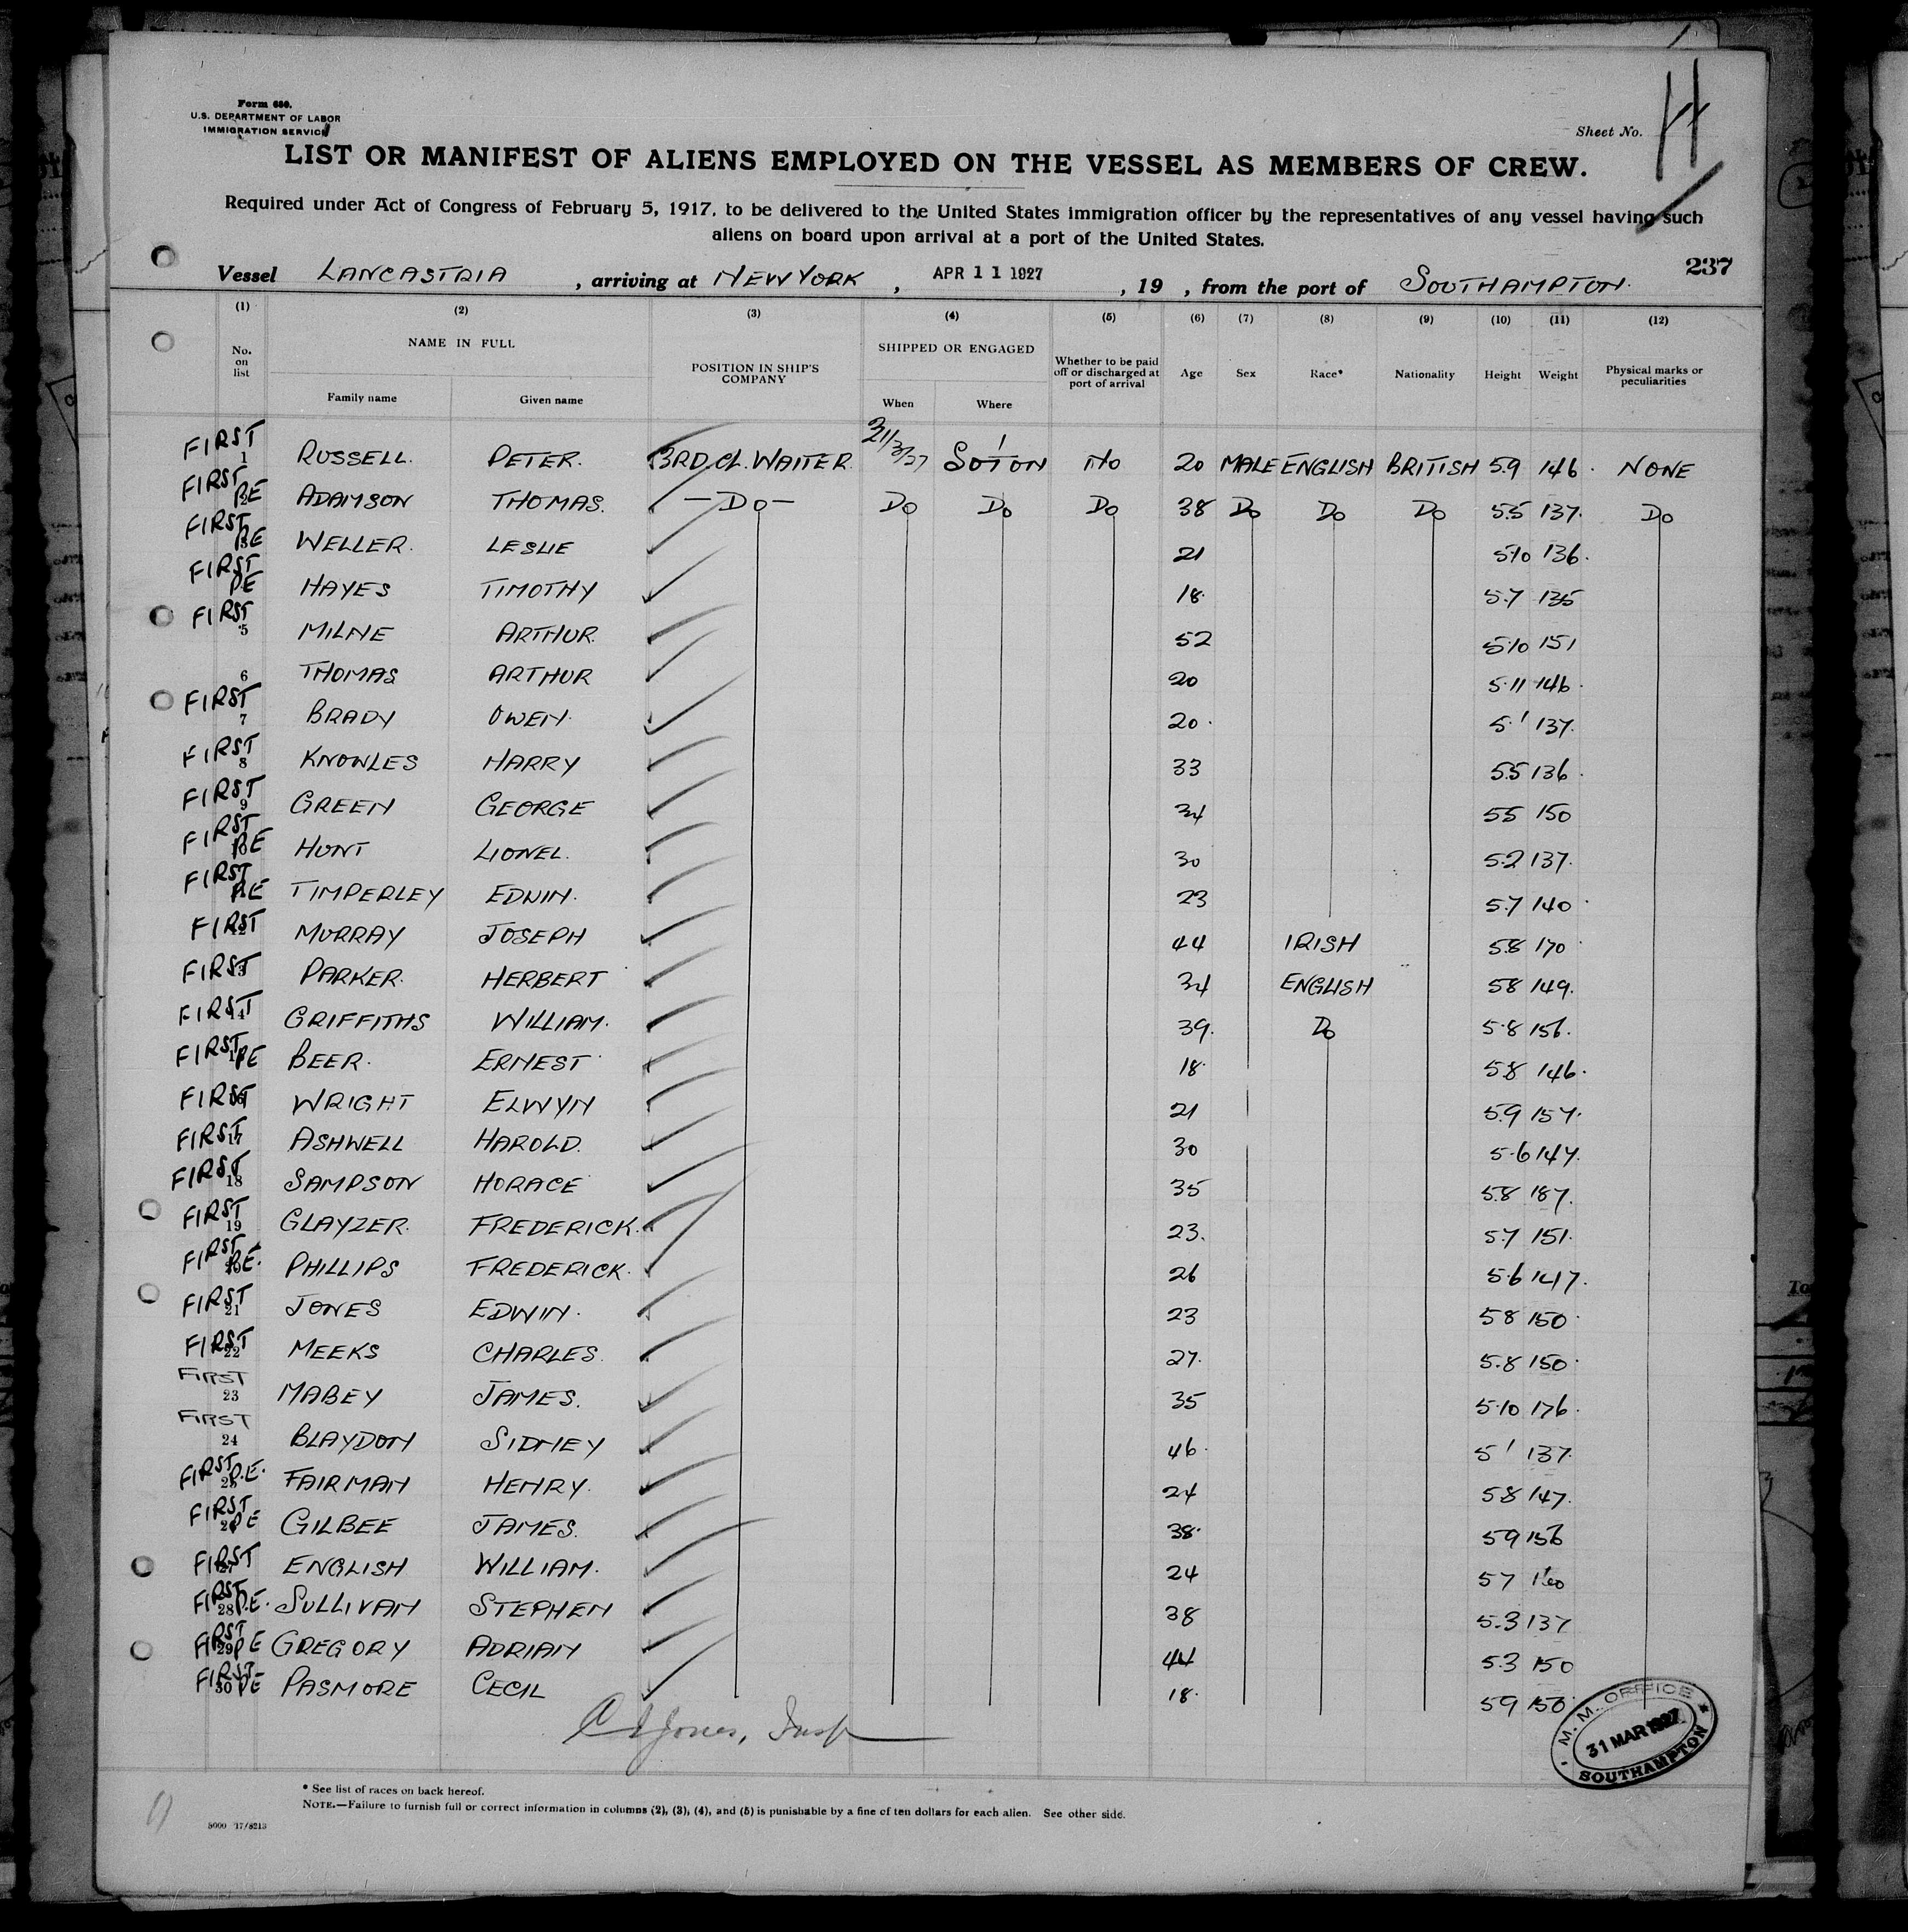 Form 680.
U.S. DEPARTMENT OF LABOR
IMMIGRATION SERVICE
Sheet No.
LIST OR MANIFEST OF ALIENS EMPLOYED ON THE VESSEL AS MEMBERS OF CREW.
Required under Act of Congress of February 5, 1917, to be delivered to the United States immigration officer by the representatives of any vessel having such
aliens on board upon arrival at a port of the United States.
237
Vessel LANCASTRIA , arriving at NEW YORK , APR 11 1927 , 19 , from the port of SOUTHAMPTON.
(1) (2) (3) (4) (5) (6) (7) (8) (9) (10) (11) (12)
No. on list NAME IN FULL POSITION IN SHIP'S COMPANY SHIPPED OR ENGAGED Whether to be paid off or discharged at port of arrival Age Sex Race* Nationality Height Weight Physical marks or peculiarities
Family name Given name When Where
FIRST 1 RUSSELL. PETER. 3RD CL. WAITER 31/3/27 SOTON NO 20 MALE ENGLISH BRITISH 5.9 146. NONE
FIRST PE 2 ADAMSON THOMAS. -DO- DO DO DO 38 DO DO DO 5.5 137. DO
FIRST PE 3 WELLER. LESLIE 21 5.10 136.
FIRST PE HAYES TIMOTHY 18. 5.7 135
FIRST 5 MILNE ARTHUR. 52 5.10 151
6 THOMAS ARTHUR 20 5.11 146.
FIRST 7 BRADY OWEN. 20. 5.' 137.
FIRST 8 KNOWLES HARRY 33 5.5 136.
FIRST 9 GREEN GEORGE 34 5.5 150
FIRST PE HUNT LIONEL. 30 5.2 137.
FIRST PE TIMPERLEY EDWIN. 23 5.7 140.
FIRST 12 MURRAY JOSEPH 44 IRISH 5.8 170
FIRST 13 PARKER. HERBERT 34 ENGLISH 5.8 149.
FIRST 14 GRIFFITHS WILLIAM. 39. DO 5.8 156.
FIRST PE BEER. ERNEST 18. 5.8 146.
FIRST 16 WRIGHT ELWYN 21 5.9 157.
FIRST 17 ASHWELL HAROLD. 30 5.6 147.
FIRST 18 SAMPSON HORACE 35 5.8 187.
FIRST 19 GLAYZER. FREDERICK. 23. 5.7 151.
FIRST PE. PHILLIPS FREDERICK. 26 5.6 147.
FIRST 21 JONES EDWIN. 23 5.8 150.
FIRST 22 MEEKS CHARLES. 27. 5.8 150.
FIRST 23 MABEY JAMES. 35 5.10 176.
FIRST 24 BLAYDON SIDNEY 46. 5' 137.
FIRST P.E. 25 FAIRMAN HENRY. 24 5.8 147.
FIRST PE 26 GILBEE JAMES. 38. 5.9 156
FIRST 27 ENGLISH WILLIAM. 24 5.7
FIRST P.E. 28 SULLIVAN STEPHEN 38 5.3 137
FIRST PE 29 GREGORY ADRIAN 44 5.3 150
FIRST PE 30 PASMORE CECIL 18. 5.9 150.
Jones, Insp
M. M. OFFICE
31 MAR 1927
SOUTHAMPTON
* See list of races on back hereof.
NOTE.—Failure to furnish full or correct information in columns (2), (3), (4), and (5) is punishable by a fine of ten dollars for each alien. See other side.
5000 17/8213